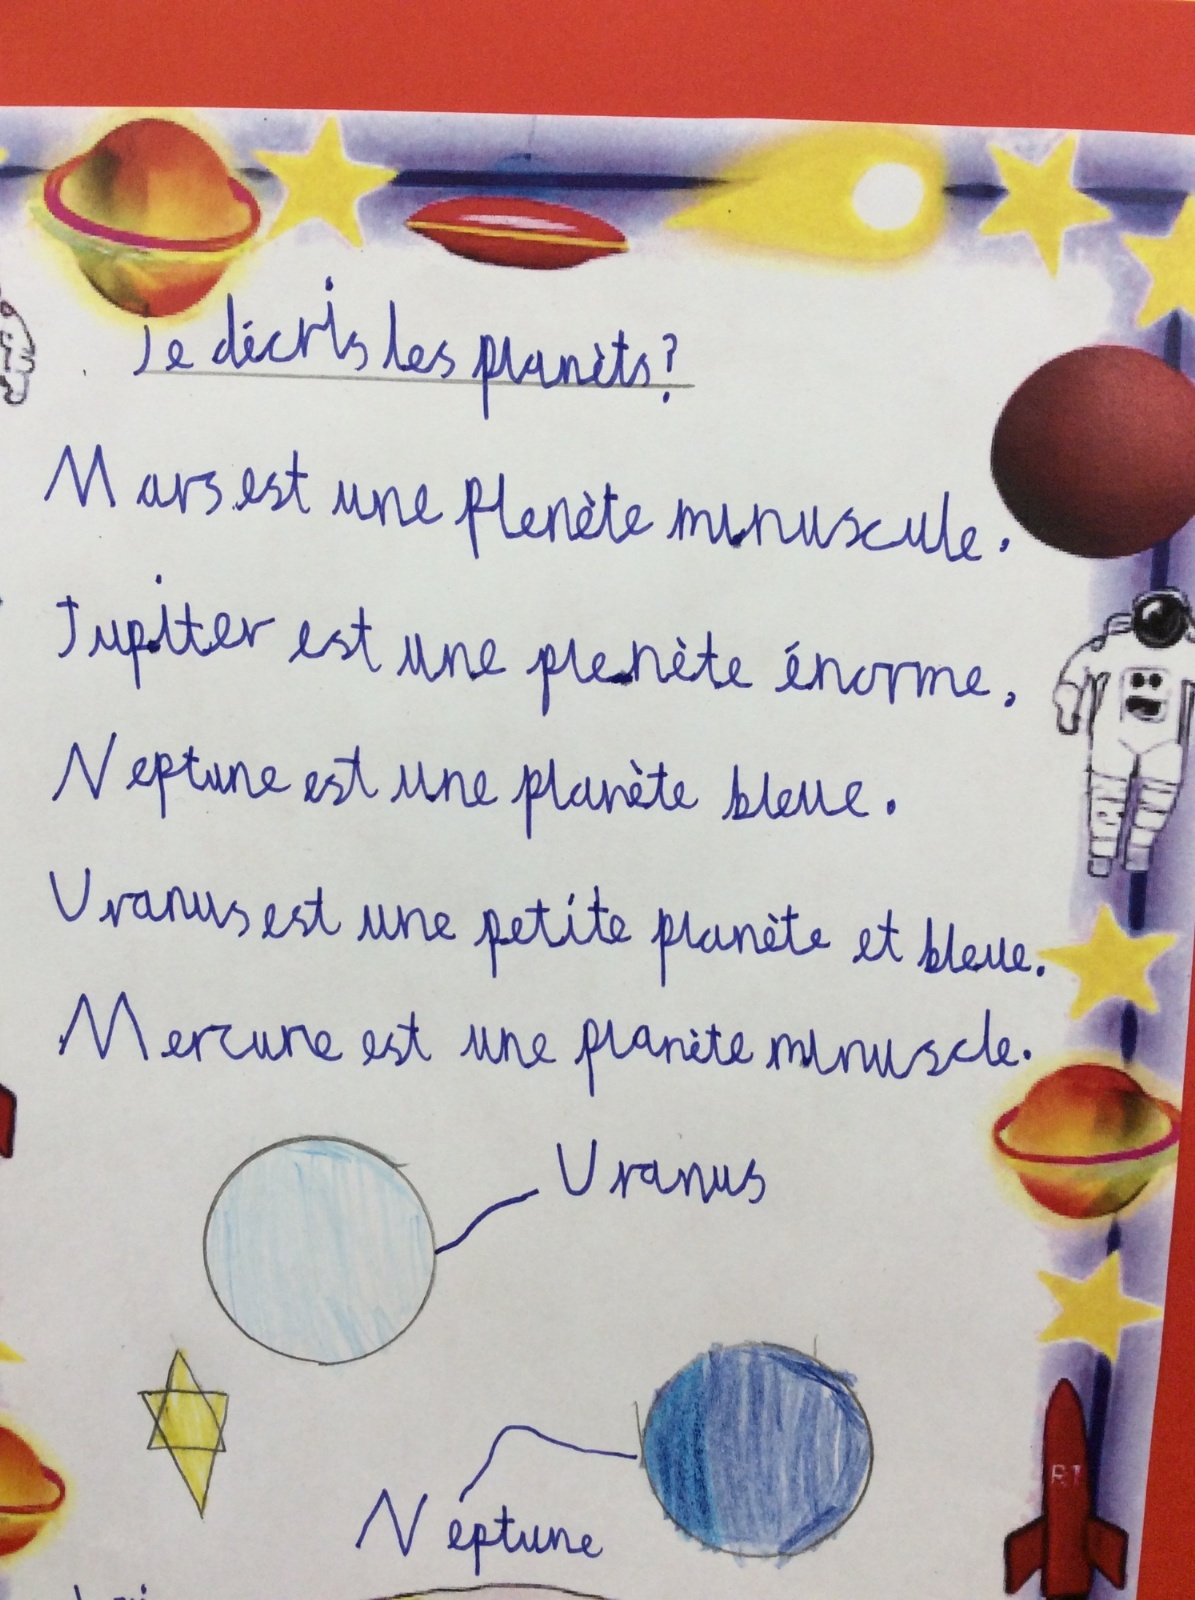 Je décris les planèts?
Mars est une plenète minuscule.
Jupiter est une plenète énorme.
Neptune est une planète bleue.
Uranus est une petite planète et bleue.
Mercure est une planète minuscle.
Uranus
Neptune
R1